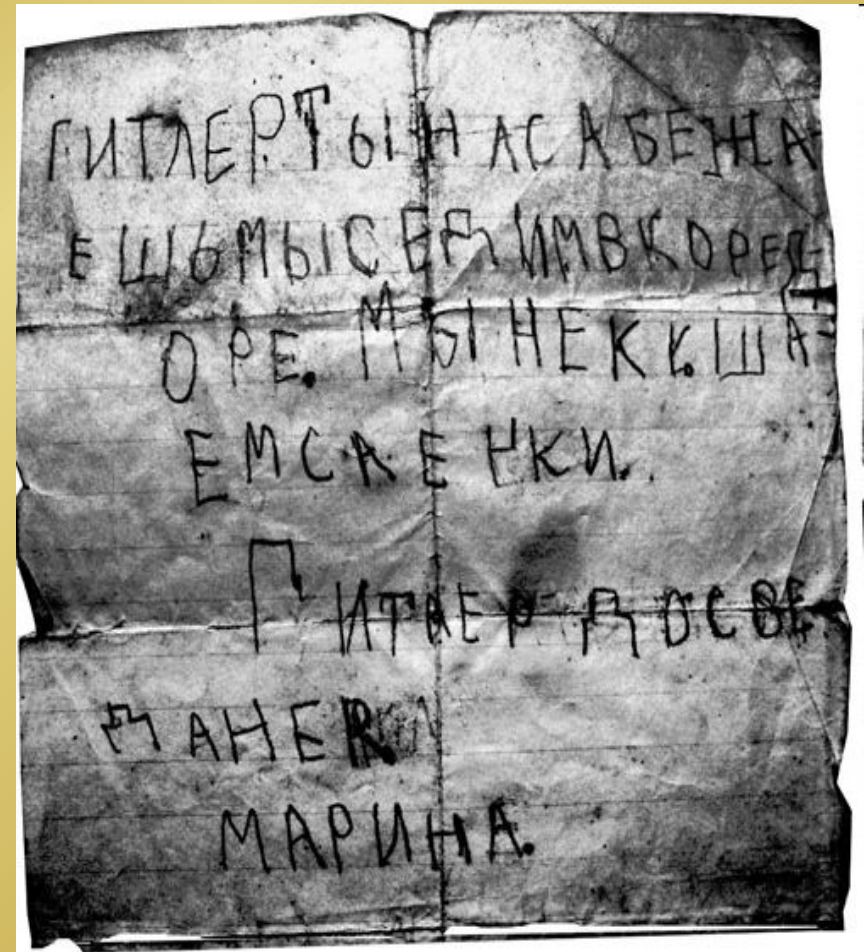 ГИТЛЕР ТЫ НАС АБЕЖА
ЕШЬ МЫ СЕДИМ В КОРЕД
ОРЕ. МЫ НЕ ККШ.ША
ЕМСА ЕНКИ.
ГИТЛЕР ДОСВЕ
ДАНЕЯ
МАРИНА.